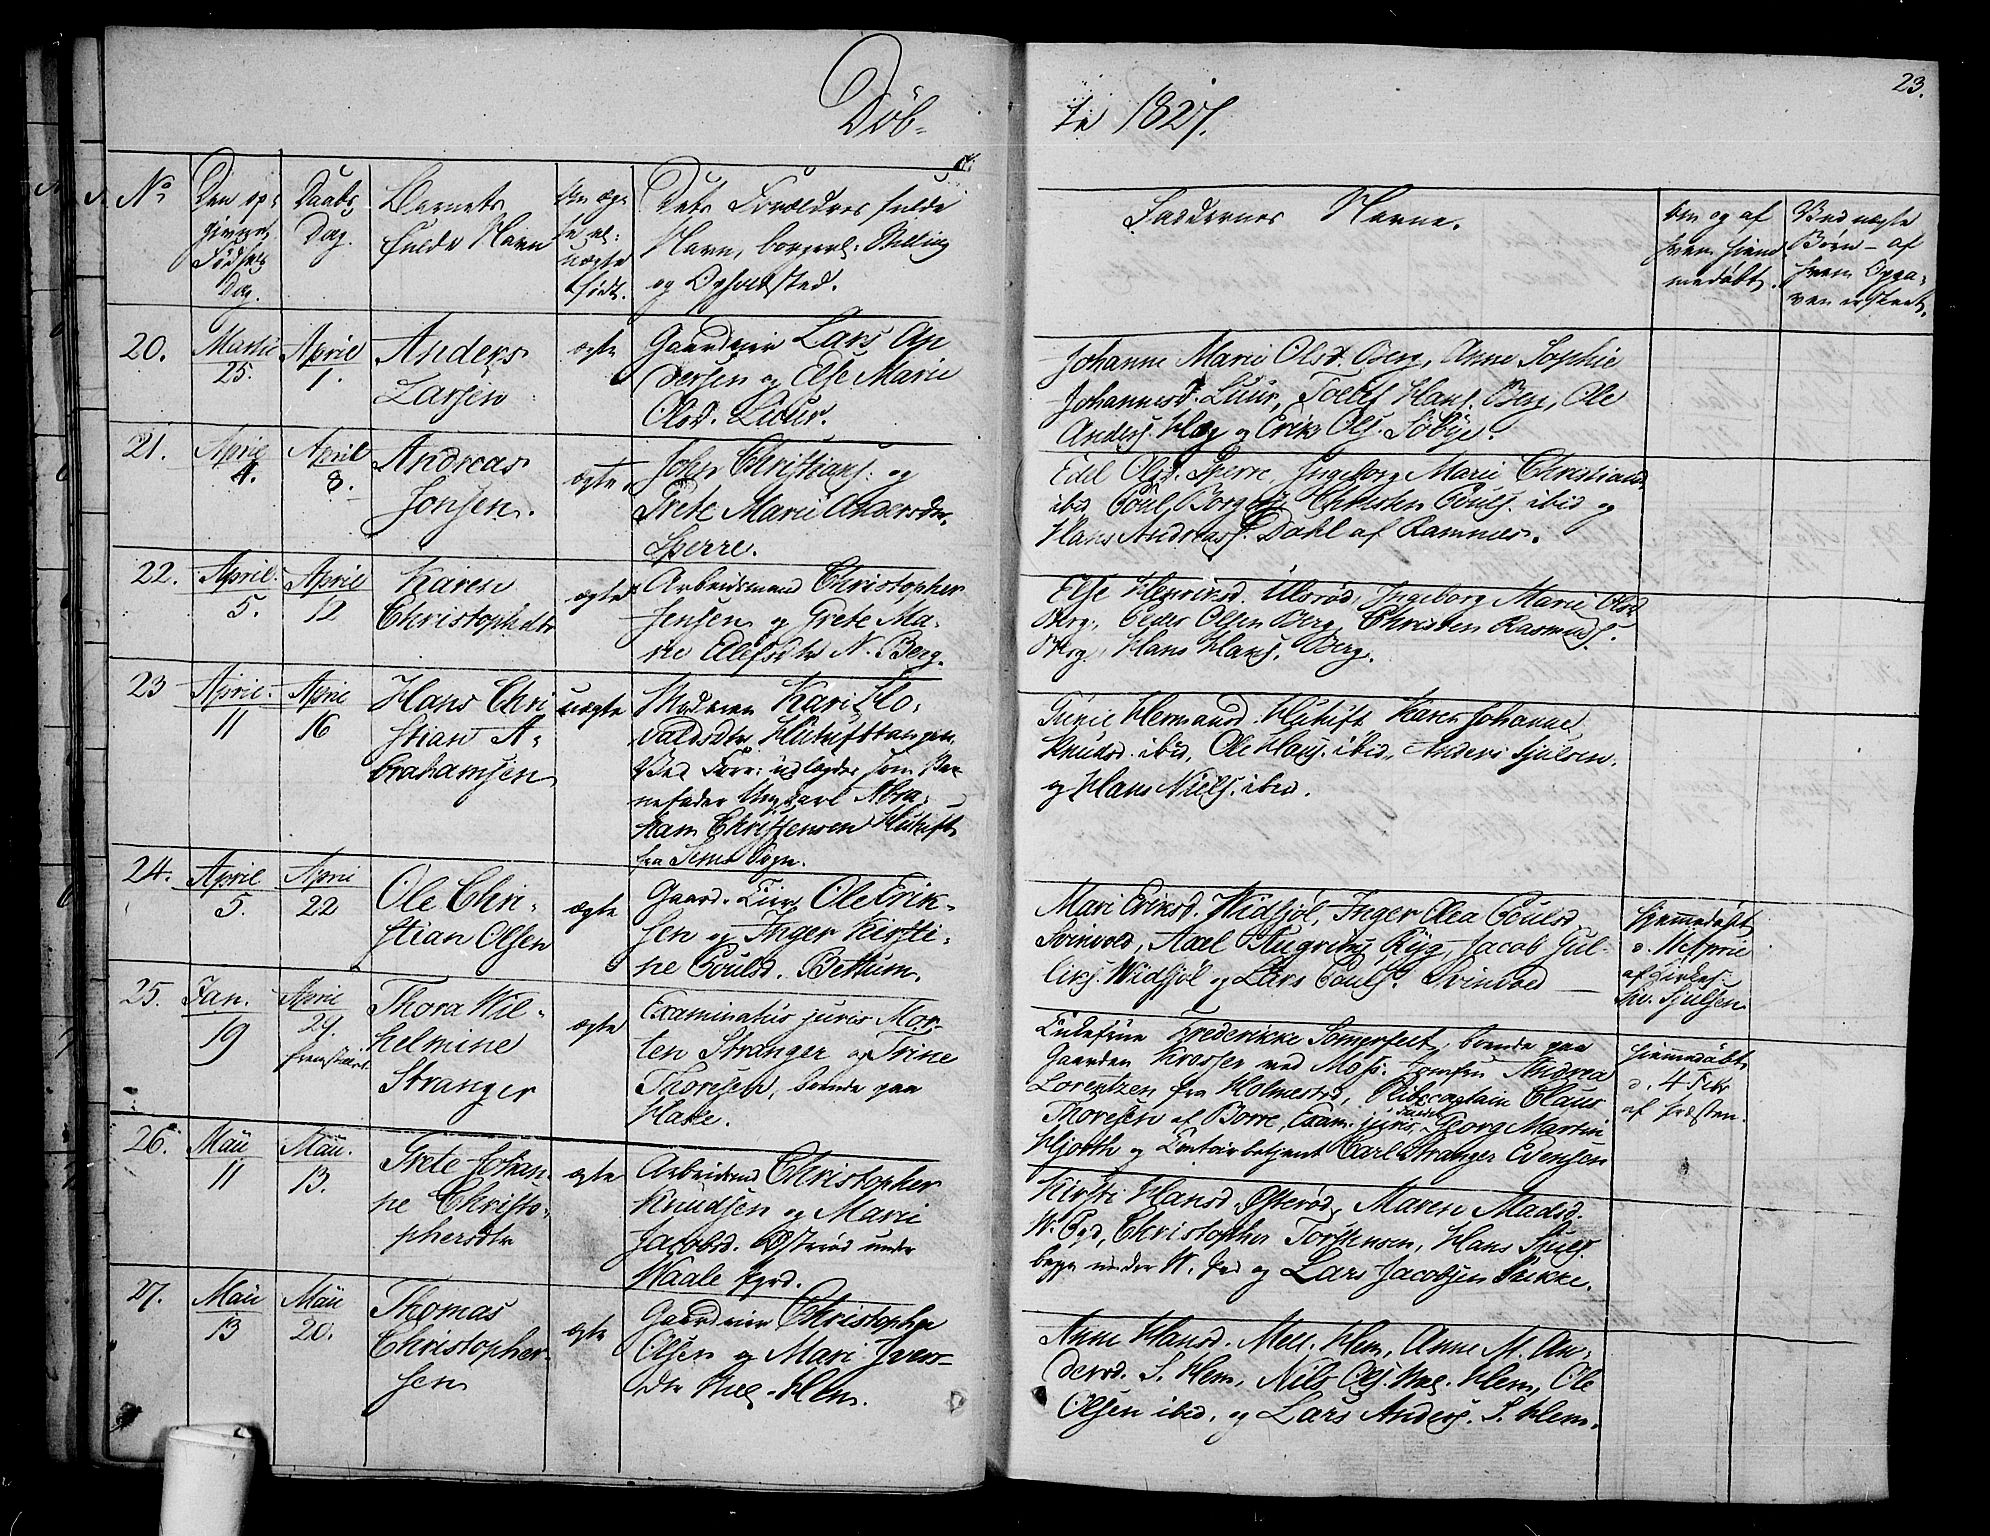 Døb-
te 1827.
23.
No
Den op-
givne
Fødsels
Dag.
Daabs
Dag.
Barnets
fulde Navn
Om æg-
te el:
uægte
født.
Dets Forældres fulde
Navn, borgerl: Stilling
og Opholdsted.
Faddernes Navne.
om og af
hvem hjem-
medøbt.
Ved uægte
Børn - af
hvem Opga-
ven er skeet.
20.
Martii
25.
April
1.
Anders
Larsen
ægte
Gaardeier Lars An
dersen og Else Marie
Olsd. Luur.
Johanne Marie Olsd. Berg, Anne Sophie
Johannesd. Luur, Tollef Hans. Berg, Ole
Anders. Hæg og Erik Ols. Søbye.
21.
April
4.
April
8.
Andreas
Jonsen.
ægte
John Christians. og
Grete Marie Andersdtr.
Sperre.
Edel Olsd. Sperre, Ingeborg Marie Christiansd
ibid Poul Borge Christen Pouls. ibid og
Hans Andreas. Dahl af Ramnes.
22.
April
5.
April
12
Karen
Christophdtr
ægte
Arbeidsmand Christopher
Jensen og Grete Ma-
rie Ellefsdtr N. Berg.
Else Henriksd. Ulsrød, Ingeborg Marie Olsd
Berg, Peder Olsen Berg, Christen Rasmuss.
Berg, Hans Hans. Berg.
23
April
11
April
16
Hans Chri
stian A-
brahamsen
uægte
Moderen Kari Ho-
valdsdtr.
Ved Forr: udlagdes som Bar-
nefader Ungkarl Abra-
ham Christensen
fra Sems Sogn.
Turie Hermansd. Karen Johanne
Knudsd. ibid, Ole Hans. ibid, Anders Sjulsen
og Hans Niels. ibid.
24.
April
5.
April
22
Ole Chri-
stian Olsen
ægte
Gaard. Ole Erik-
sen og Inger Kirsti-
ne Poulsd. Bettum.
Mari Eriksd. Widsjøl, Inger Olea Poulsd
Svinvold, Axel Ryg, Jacob Gul-
liks. Widsjøl og Lars Pouls. Svinvold
Hjemmedøbt
d. 11 April
af Kirkes.
Sjulsen
25.
Jan.
19
April
29.
fremstillet
Thora Wil-
helmine
Stranger
ægte
Examinatus juris Mor-
ten Stranger og Trine
Thoresen, boende paa
Hake.
Frederikke Somerfelt, boende paa
Gaarden med Jomfru Andrea
Lorentzen fra Holmestrd, Skibscaptain Claus
Thoresen af Borre, Exam. juris Georg Martin
Hjorth og Contoirbetjent Carl Stranger Evensen
Hjemmedøbt
d. 4 Febr
af Præsten.
26.
Maii
11
Maii.
13.
Grete Johan-
ne Christo-
phersdtr
ægte
Arbeidsmd Christopher
Knudsen og Marie
Jacobsd. Østerød under
Waale Pgrd.
Kirsti Hansd. Østerød, Maren Madsd.
W. Pgd, Christopher Torstensen, Hans
under W. og Lars Jacobsen
27.
Maii
13
Maii
20.
Thomas
Christopher-
sen
ægte
Gaardeier Christopher
Olsen og Mari Ivers-
dtr Hem.
Anne Hansd. Mell. Hem, Anne M. An-
dersd. S. Hem, Nils Ols. Hem, Ole
Olsen ibid. og Lars Anders. S. Hem.